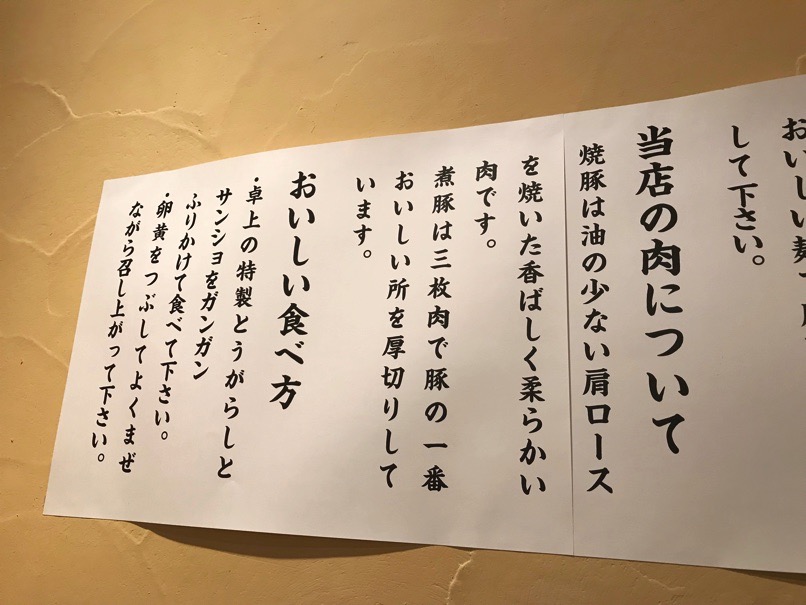 おいしい麺で
して下さい。
当店の肉について
焼豚は油の少ない肩ロース
を焼いた香ばしく柔らかい
肉です。
煮豚は三枚肉で豚の一番
おいしい所を厚切りして
います。
おいしい食べ方
・卓上の特製とうがらしと
サンショをガンガン
ふりかけて食べて下さい。
・卵黄をつぶしてよくまぜ
ながら召し上がって下さい。